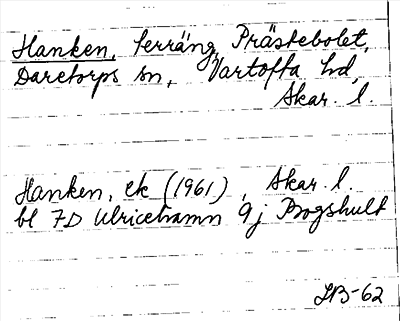 Hanken, terräng, Prästebolet,
Daretorps sn, Vartofta hd,
Skar. l.
Hanken, ek (1961), Skar. l.
bl 7D Ulricehamn 9j Bogshult
LB-62